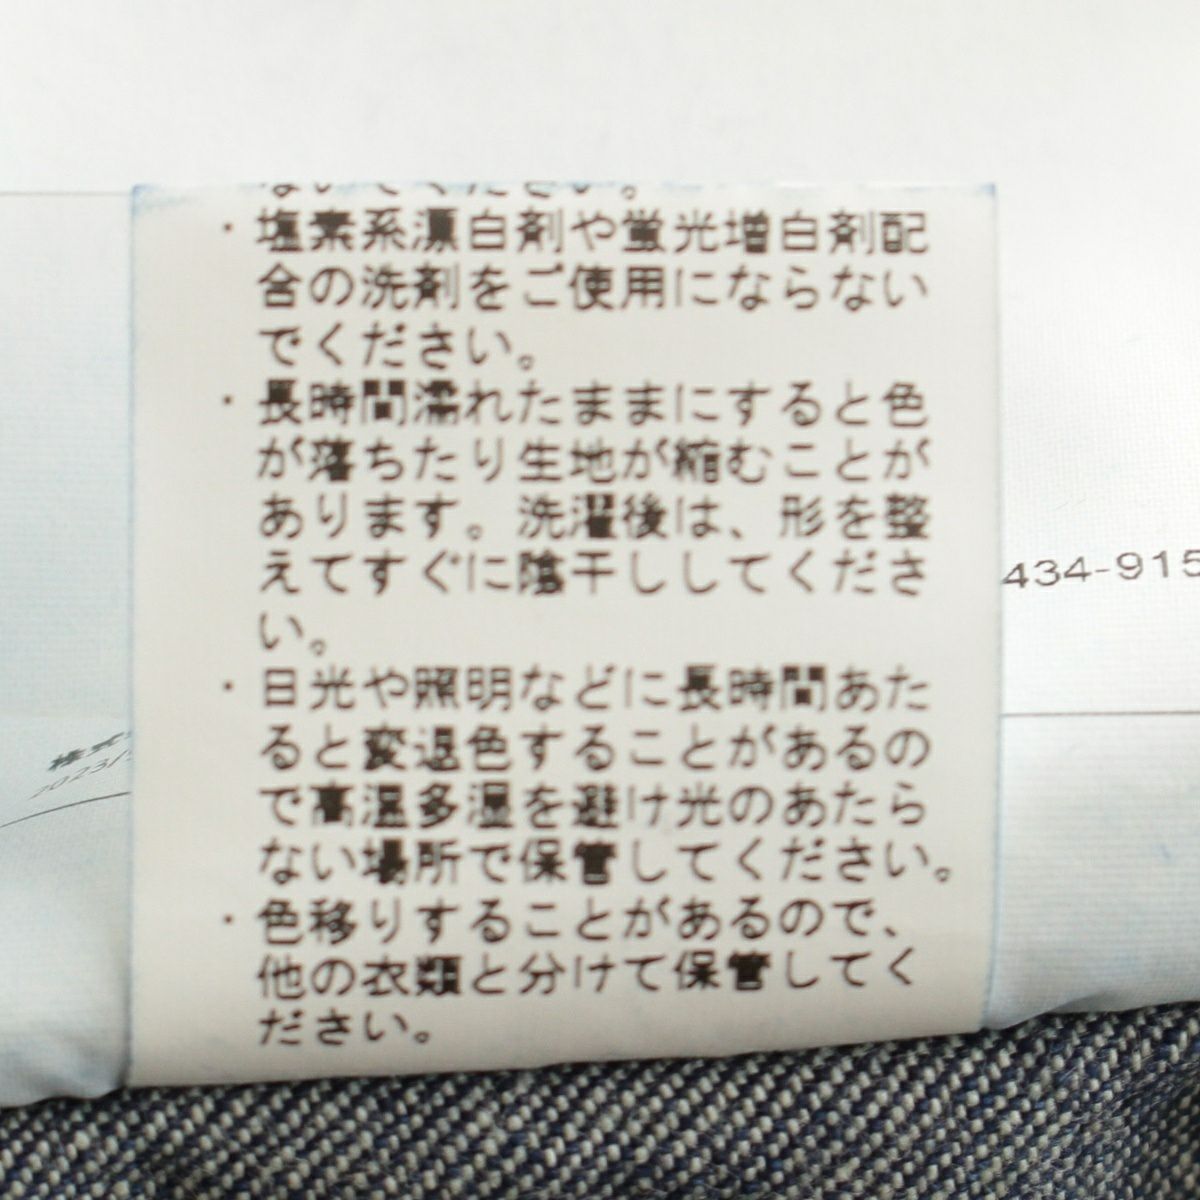 ないでください。
・塩素系漂白剤や蛍光増白剤配
合の洗剤をご使用にならない
でください。
・長時間濡れたままにすると色
が落ちたり生地が縮むことが
あります。洗濯後は、形を整
えてすぐに陰干ししてくださ
い。
・日光や照明などに長時間あた
ると変退色することがあるの
で高温多湿を避け光のあたら
ない場所で保管してください。
・色移りすることがあるので、
他の衣類と分けて保管してく
ださい。
434-915
株式
2023/